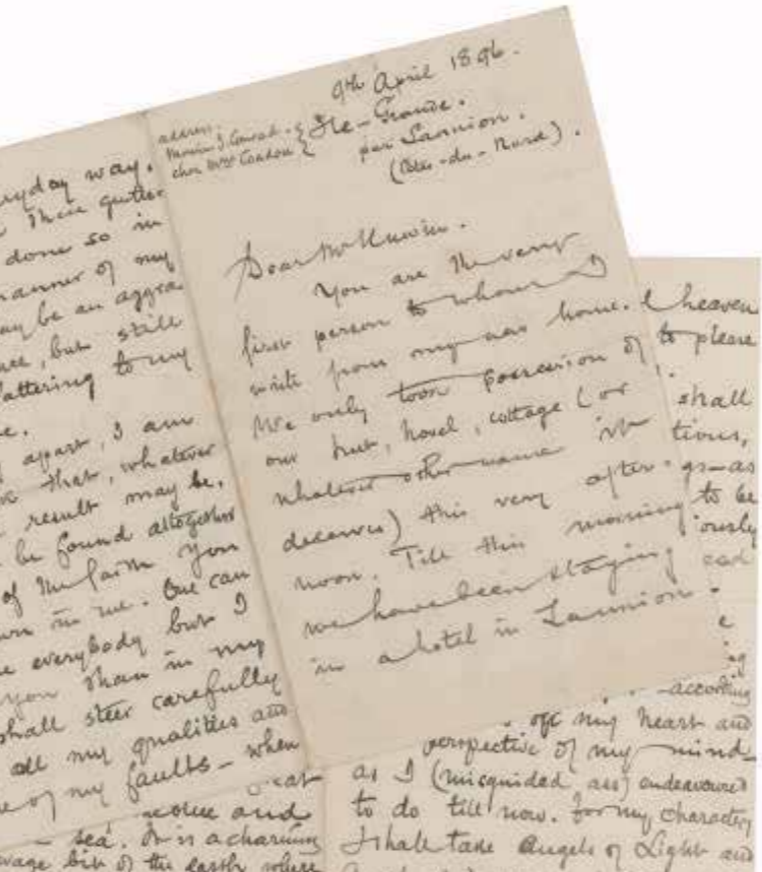 9th April 1896.
address:
Monsieur J. Conrad.
chez Mme Coadou
Ile-Grande.
par Lannion.
(Côtes-du-Nord).
Dear Mr Unwin.
You are the very
first person to whom I
write from my new home.
We only took possession of
our hut, hovel, cottage (or
whatever other name it
deserves) this very after-
noon. Till this morning
we have been staying
in a hotel in Lannion.
yday way.
These gutter
done so in
anner of my
ay be an aggra
, but still
lattering to my
e.
apart, I am
that, whatever
result may be,
be found altogether
of the faith you
wn in me. One can
e everybody but I
you than in my
shall steer carefully
all my qualities and
e of my faults – when
eat
and
sea. It is a charming
vage bit of the earth where
heaven
to please
shall
tious,
gs—as
to be
ously
e
ng
according
off my heart and
perspective of my mind
as I (misguided ass) endeavoured
to do till now. For my characters
I shall take Angels of Light and